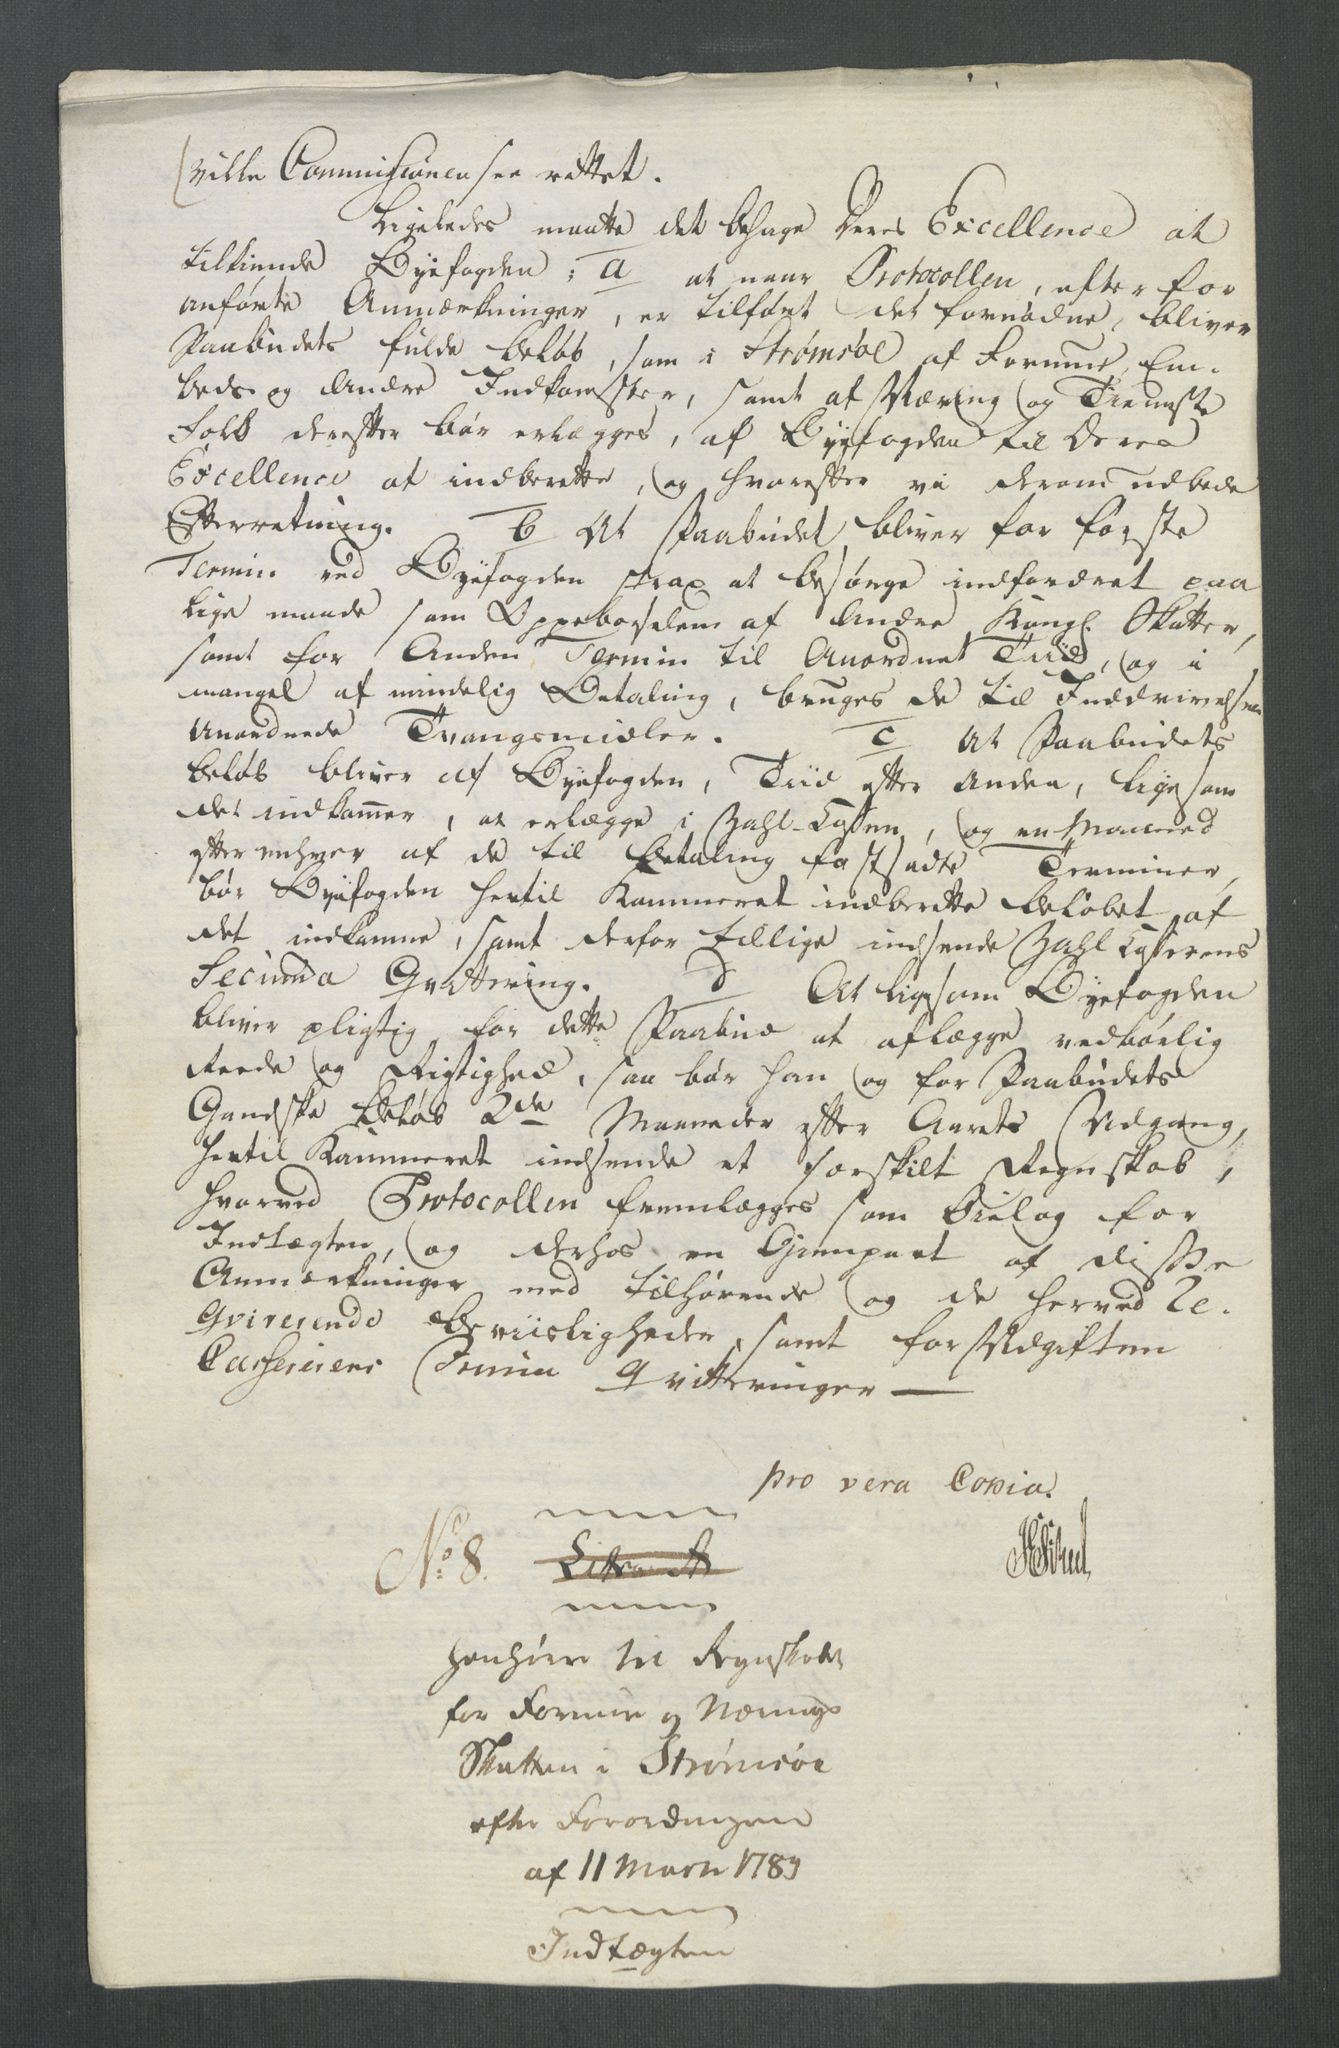 ville Commissionen see rettet.
Ligeledes maatte det behage Deres Excellence at
tilkiende Byefogden: a at naar Protocollen, efter for
anførte Anmærkninger, er tilført det fornødne, bliver
Paabudets fulde Beløb, som i Strømsøe af Formue, Em-
beds og andre Indkomster, samt af Næring og Tieneste
Folk derefter bør erlægges, af Byefogden til Deres
Excellence at indberette, og hvorefter vi derom udbede
Efterretning. b At Paabudet bliver for første
Termin ved Byefogden strax at besørge indfordret paa
lige maade som Oppebørselen af andre Kongl. Skatter,
samt for Anden Termin til Anordnet Tiid, og i
mangel af mindelig Betaling, bruges de til Inddrivelsen
anordnede Tvangsmidler. c At Paabudets
beløb bliver af Byefogden, Tiid efter anden, ligesom
det indkommer, at erlægge i Zahl-Cassen, og en Maaned
efter enhver af de til Betaling fastsadte Terminer,
bør Byefogden hertil Kammeret indberette Beløbet af
det indkomne, samt derfor tillige indsende Zahl Casserens
Secunda Qvittering. d At ligesom Byefogden
bliver pligtig for dette Paabud at aflægge vedbørlig
Reede og Rigtighed, saa bør han og for Paabudets
Gandske Beløb 2de Maaneder efter Aarets Udgang,
hertil Kammeret indsende et særskilt Regnskab,
hvorved Protocollen fremlægges som Bielag for
Indtægten, og derhos en Gienpart af disse
Anmærkninger med tilhørende og de herved Re-
qvirerende Beviisligheder, samt for Udgiften
Casserens Prima Qvitteringer
pro vera Copia.
No. 8. Littra A
Henhører til Regnskabet
for Formue og Nærings
Skatten i Strømsøe
efter Forordningen
af 11 Marti 1789
Indtægten